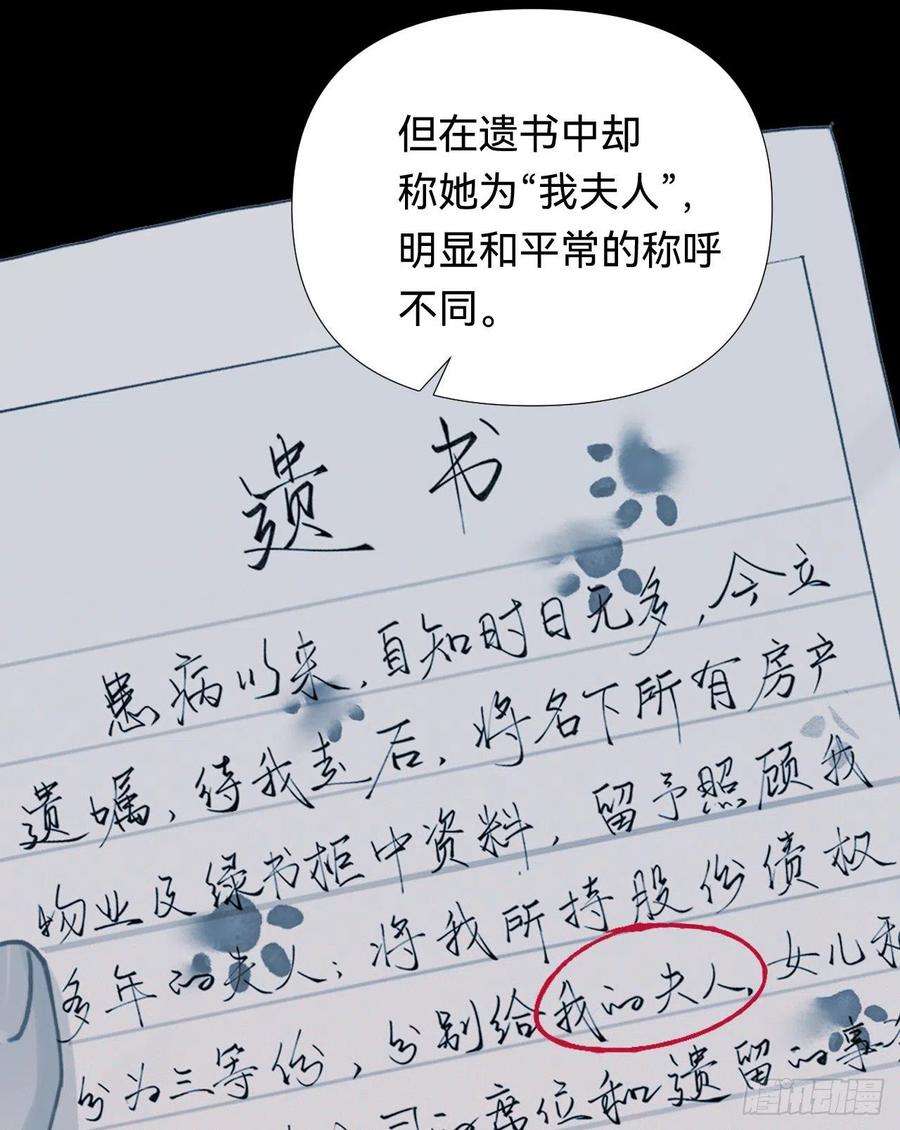 但在遗书中却
称她为“我夫人”,
明显和平常的称呼
不同。
遗书
患病以来,自知时日无多,今立
遗嘱,待我走后,将名下所有房产
物业及绿书柜中资料,留予照顾我
多年的夫人;将我所持股份债权
分为三等份,分别给我的夫人、女儿和
司的席位和遗留的事
腾讯动漫